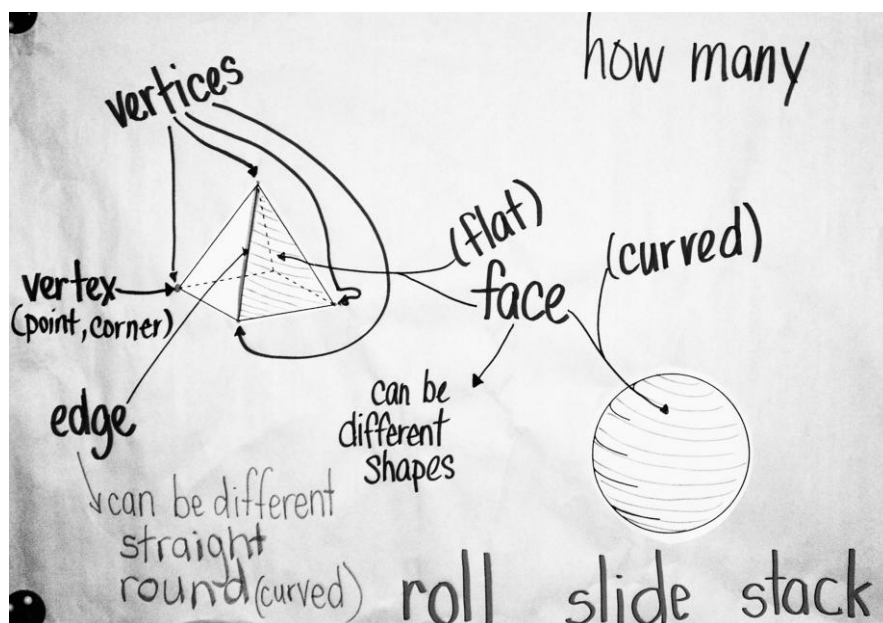 how many
vertices
(flat)
(curved)
vertex
(point, corner)
face
edge
can be
different
shapes
can be different
straight
round (curved)
roll slide stack